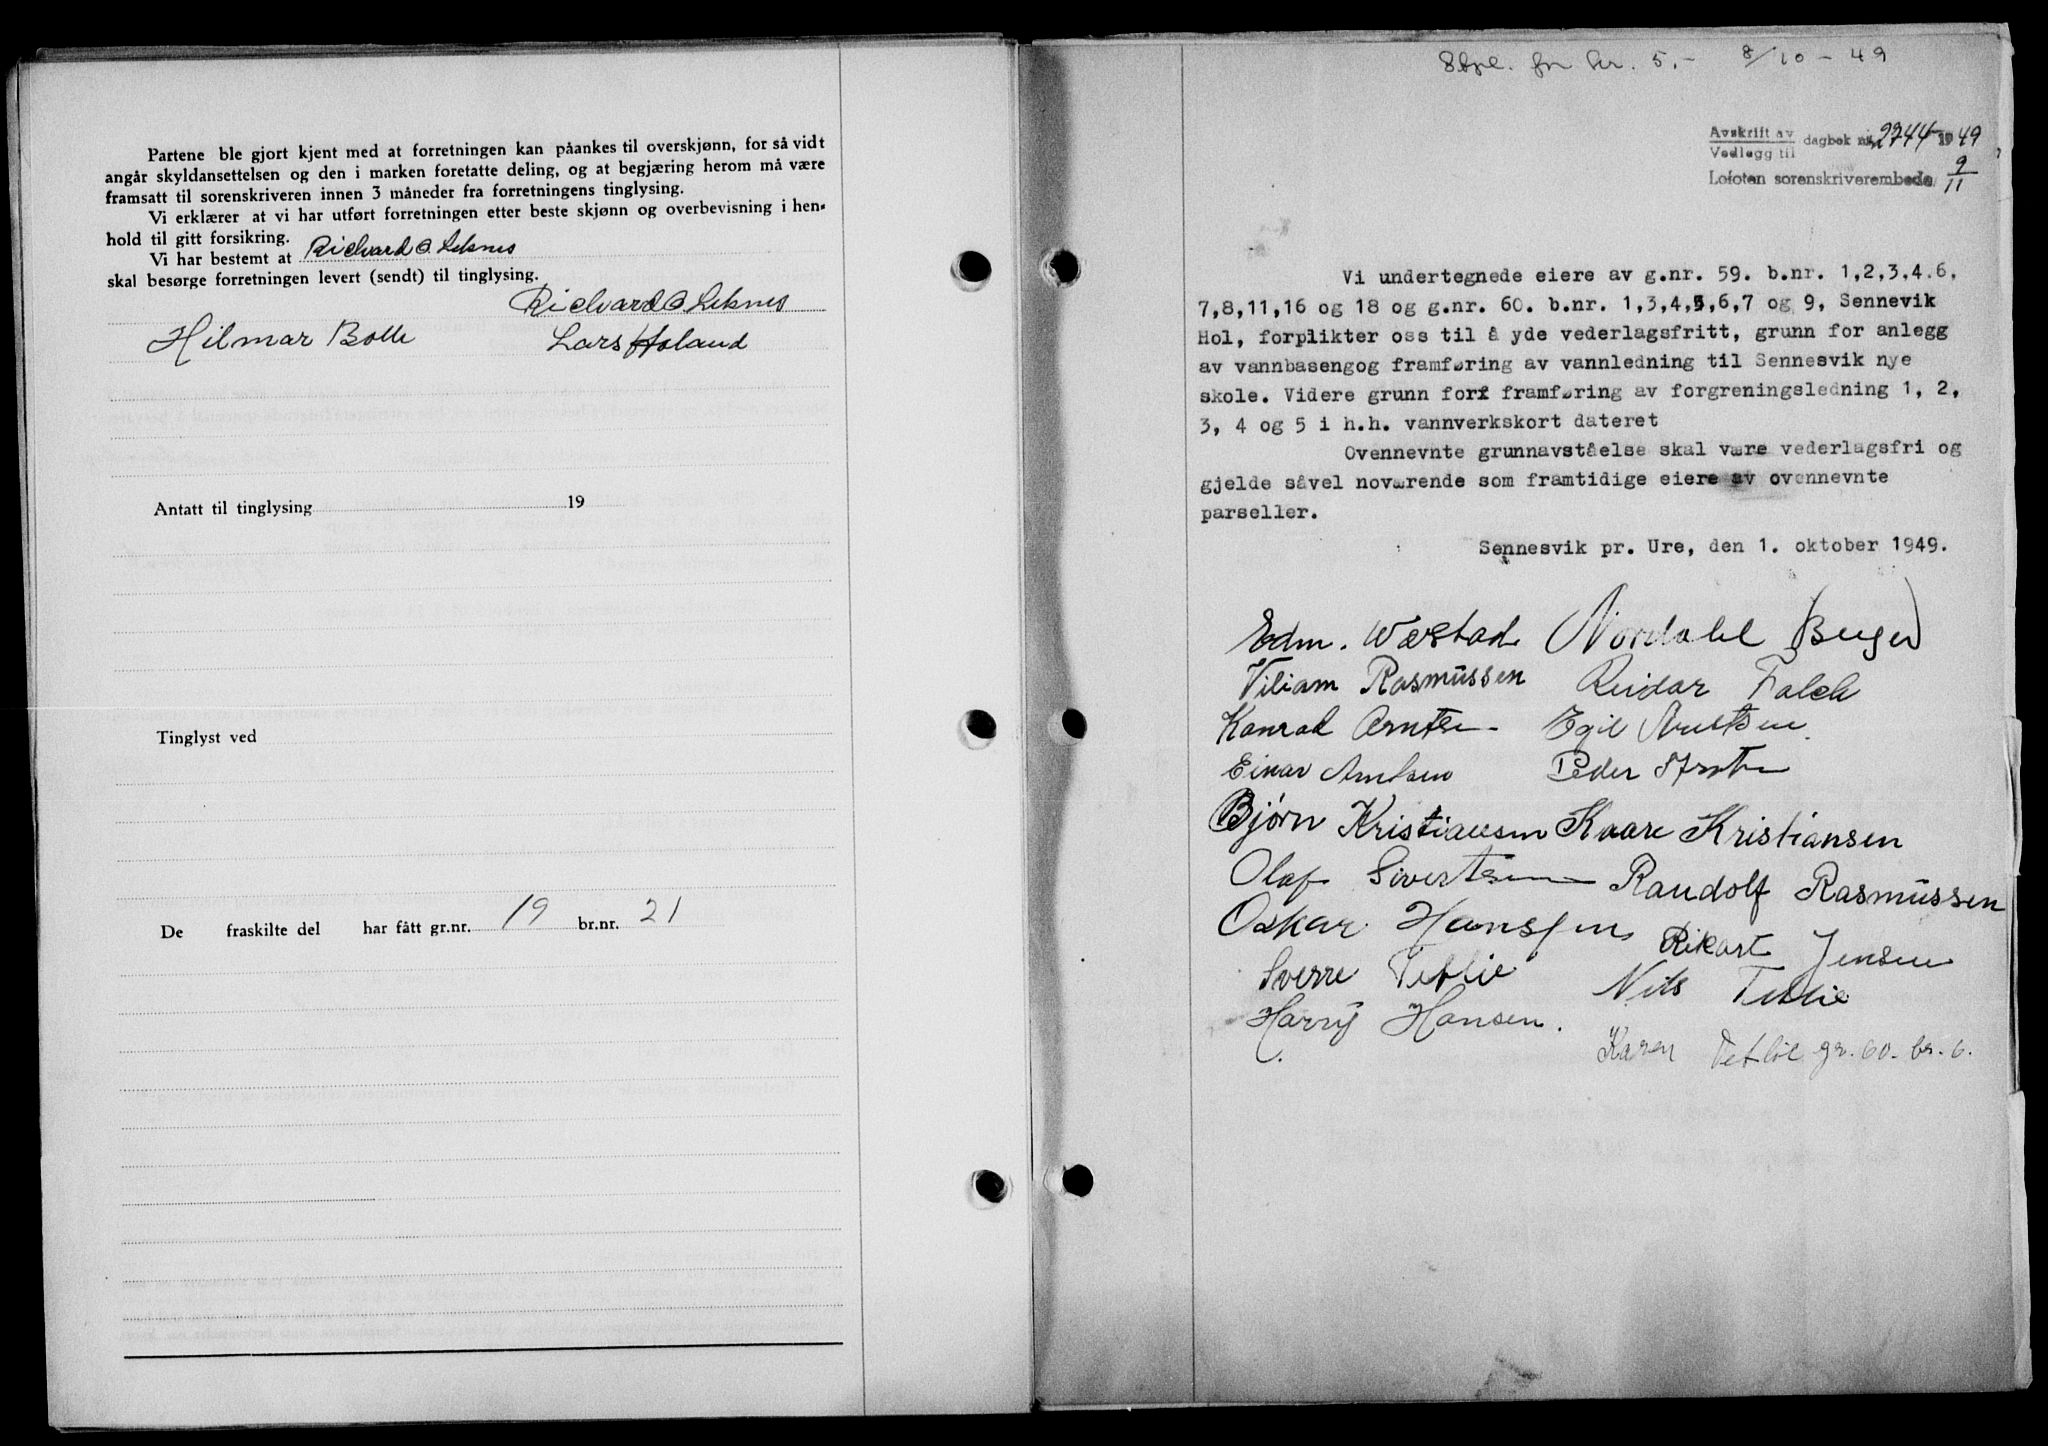 Partene ble gjort kjent med at forretningen kan påankes til overskjønn, for så vidt
angår skyldansettelsen og den i marken foretatte deling, og at begjæring herom må være
framsatt til sorenskriveren innen 3 måneder fra forretningens tinglysing.
Vi erklærer at vi har utført forretningen etter beste skjønn og overbevisning i hen-
hold til gitt forsikring.
Vi har bestemt at Richard O. Leknes
skal besørge forretningen levert (sendt) til tinglysing.
Richard O Leknes
Hilmar Bolle Lars Holand
Antatt til tinglysing 19
Tinglyst ved
De fraskilte del har fått gr.nr. 19 br.nr. 21
for kr. 5.- 8/10-49
Avskrift av
Vedlegg til dagbok nr. 2744 1949
Lofoten sorenskriverembede 9/11
Vi undertegnede eiere av g.nr. 59. b.nr. 1,2,3,4.6,
7,8,11,16 og 18 og g.nr. 60. b.nr. 1,3,4,5,6,7 og 9, Sennevik
Hol, forplikter oss til å yde vederlagsfritt, grunn for anlegg
av vannbasengog framføring av vannledning til Sennesvik nye
skole. Videre grunn forx framføring av forgreningsledning 1, 2,
3, 4 og 5 i h.h. vannverkskort dateret
Ovennevnte grunnavståelse skal være vederlagsfri og
gjelde såvel noværende som framtidige eiere av ovennevnte
parseller.
Sennesvik pr. Ure, den 1. oktober 1949.
Edm. Wærstad Nordahl Berger
Viliam Rasmussen Reidar Falch
Konrad Arntsen Egil Arntsen
Einar Arntsen Peder Arntsen
Bjørn Kristiansen Kaare Kristiansen
Olaf Sivertsen Randolf Rasmussen
Oskar Hanssen Rikart Jensen
Sverre Tetlie Nils Tetlie
Harry Hansen.
Karen Tetlie gr. 60. br. 6.